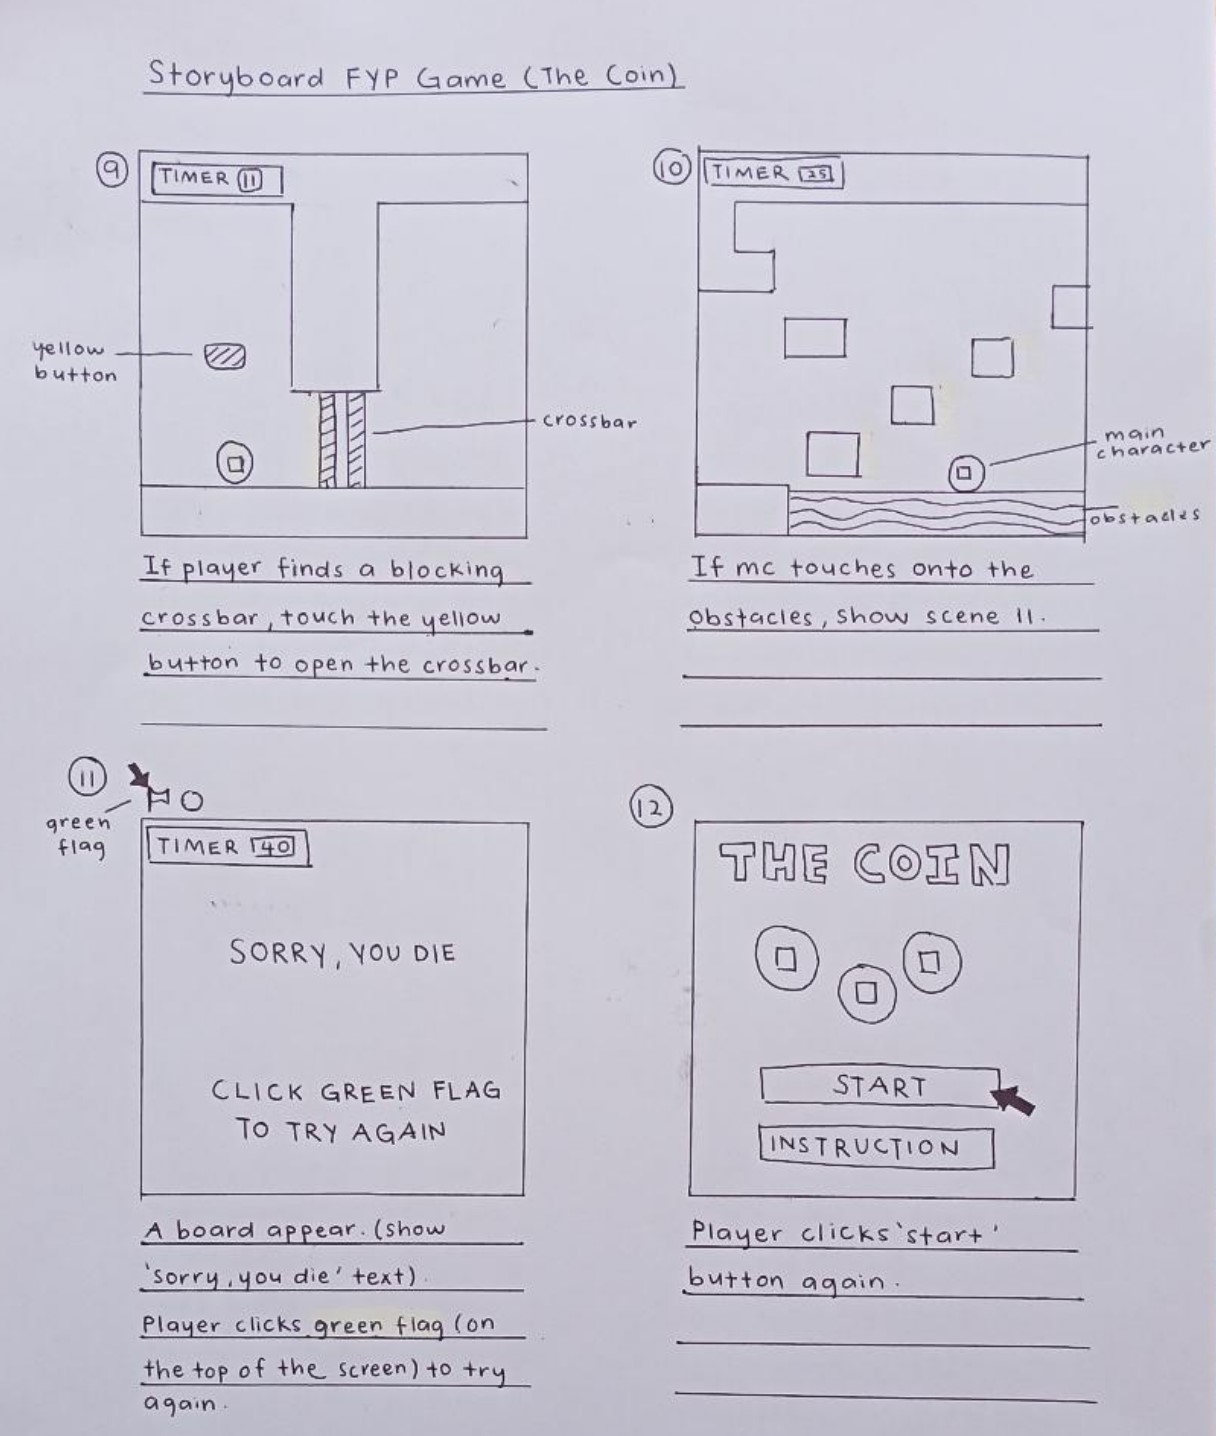 Storyboard FYP Game (The Coin)
9
TIMER 11
yellow
button
crossbar
If player finds a blocking
crossbar, touch the yellow
button to open the crossbar.
10
TIMER 25
main
character
obstacles
If mc touches onto the
obstacles, show scene 11.
11
green
flag
TIMER 40
SORRY, YOU DIE
CLICK GREEN FLAG
TO TRY AGAIN
A board appear. (show
'sorry, you die' text).
Player clicks green flag (on
the top of the screen) to try
again.
12
THE COIN
START
INSTRUCTION
Player clicks 'start'
button again.